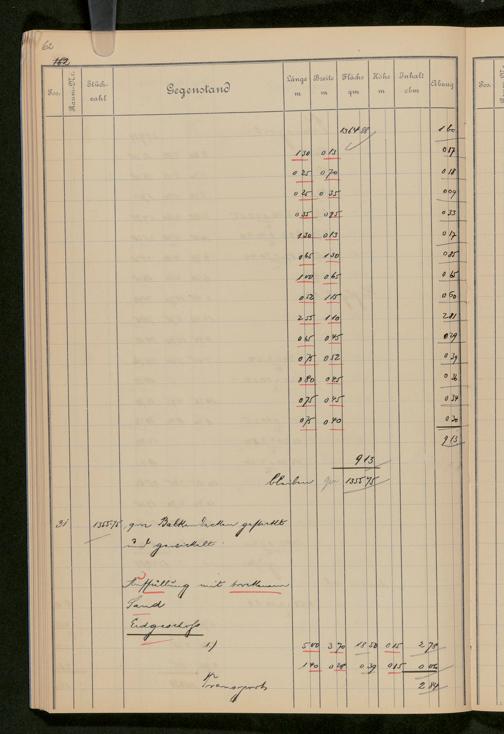 62
162
Pos. Raum-Nr. Stück-zahl Gegenstand Länge m Breite m Fläche qm Höhe m Inhalt cbm Abzug
1364 88 1 60
1 30 0 13 0 17
0 25 0 70 0 18
0 25 0 35 0 09
0 35 0 95 0 33
1 30 0 13 0 17
0 65 1 30 0 85
1 00 0 65 0 65
0 52 1 15 0 60
2 55 1 10 2 81
0 65 0 45 0 29
0 75 0 52 0 39
0 80 0 45 0 36
0 75 0 45 0 34
0 75 0 40 0 30
9 13
9 13
bleiben qm 1355 75
31 1355 75 qm Balkendecken gestakt
und gewickelt.
Auffüllung mit trockenem
Sand
Erdgeschoß
1.) 5 00 3 70 18 50 0 15 2 78
1 40 0 28 0 39 0 15 0 06
Transport 2 84